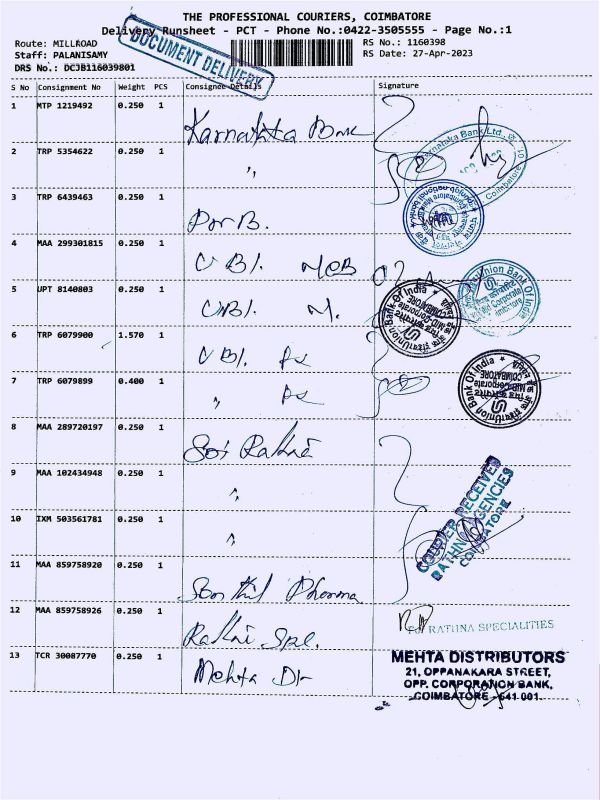 THE PROFESSIONAL COURIERS, COIMBATORE
Delivery Runsheet - PCT - Phone No.:0422-3505555 - Page No.:1
Route: MILLROAD
Staff: PALANISAMY
DRS No.: DCJB116039801
DOCUMENT DELIVERY
RS No.: 1160398
RS Date: 27-Apr-2023
S No Consignment No Weight PCS Consignee Details Signature
1 MTP 1219492 0.250 1 Karnataka Bank
Karnataka Bank Ltd.,
Coimbatore
2 TRP 5354622 0.250 1 "
3 TRP 6439463 0.250 1
4 MAA 299301815 0.250 1 UBI.
5 UPT 8140803 0.250 1 UBI. M.
Union Bank Of India
Mid Corporate
COIMBATORE
Union Bank Of India
Mid Corporate
6 TRP 6079900 1.570 1 UBI.
7 TRP 6079899 0.400 1 "
Union Bank Of India
MID Corporate
COIMBATORE
8 MAA 289720197 0.250 1 Sri Rathna
9 MAA 102434948 0.250 1 "
10 IXM 503561781 0.250 1 "
COURIER RECEIVED
RATHNA AGENCIES
COIMBATORE
11 MAA 859758920 0.250 1 Senthil Pharma
12 MAA 859758926 0.250 1 Spe.
For RATHNA SPECIALITIES
13 TCR 30087770 0.250 1 Mehta
MEHTA DISTRIBUTORS
21, OPPANAKARA STREET,
OPP. CORPORATION BANK,
COIMBATORE - 641 001.